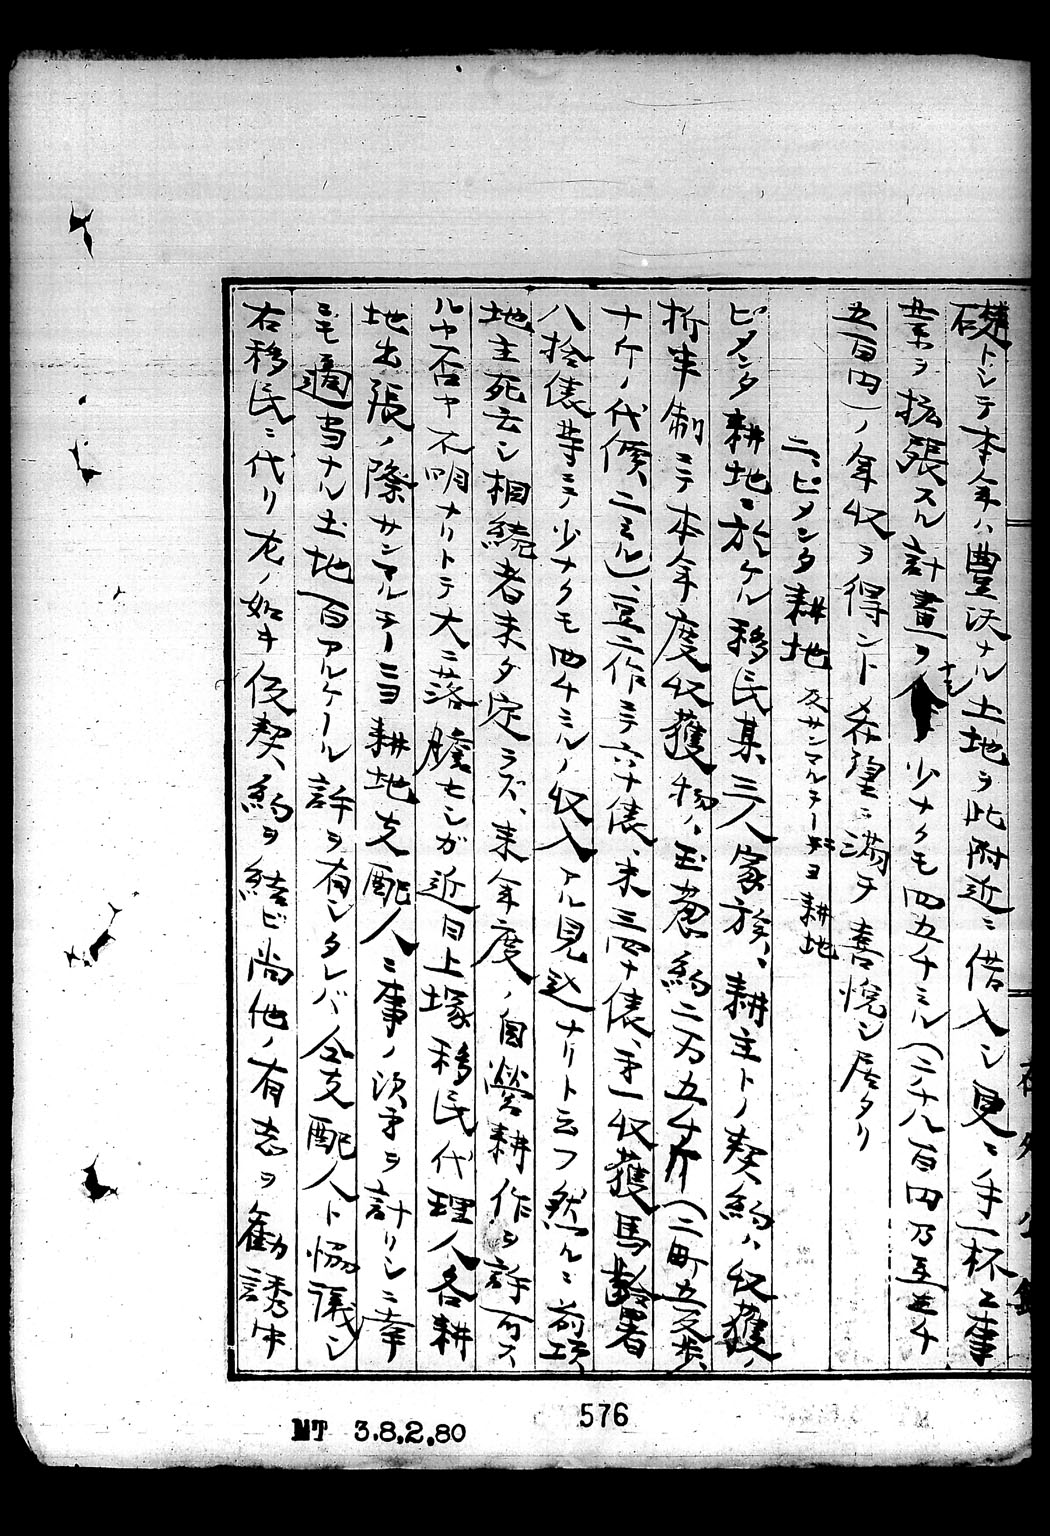 礎トシテ本年ハ豊沃ナル土地ヲ此附近ニ借入シ更ニ手一杯ニ事
業ヲ拡張スル計畫ヲナシ少ナクモ四五千ミル(二千八百円乃至三千
五百円)ノ年収ヲ得ント希望ニ満チ喜悦シ居タリ
二、ピタンタ耕地及サンマルチーニヨ耕地
ピタンタ耕地ニ於ケル移民某三人家族、耕主トノ契約ハ収獲ノ
折半制ニテ本年度収獲物ハ玉葱約二万五千斤(二町五反歩
ナケノ代價二ミル)、豆二作ニテ六十俵、米三四十俵、第一収獲馬齢薯
八拾俵等ニテ少ナクモ四千ミルノ収入アル見込ナリト云フ然ルニ前項
地主死去シ相続者未タ定ラズ、来年度ノ自営耕作ヲ許可ス
ルヤ否ヤ不明ナリトテ大ニ落膽セシガ近日上塚移民代理人各耕
地出張ノ際サンマルチーニヨ耕地支配人ニ事ノ次第ヲ計リシニ幸
ニモ適当ナル土地一百アルケール許ヲ有シタレバ仝支配人ト協議シ
右移民ニ代リ左ノ如キ仮契約ヲ結ビ尚他ノ有志ヲ勧誘中
在外公館
576
MT 3.8.2.80